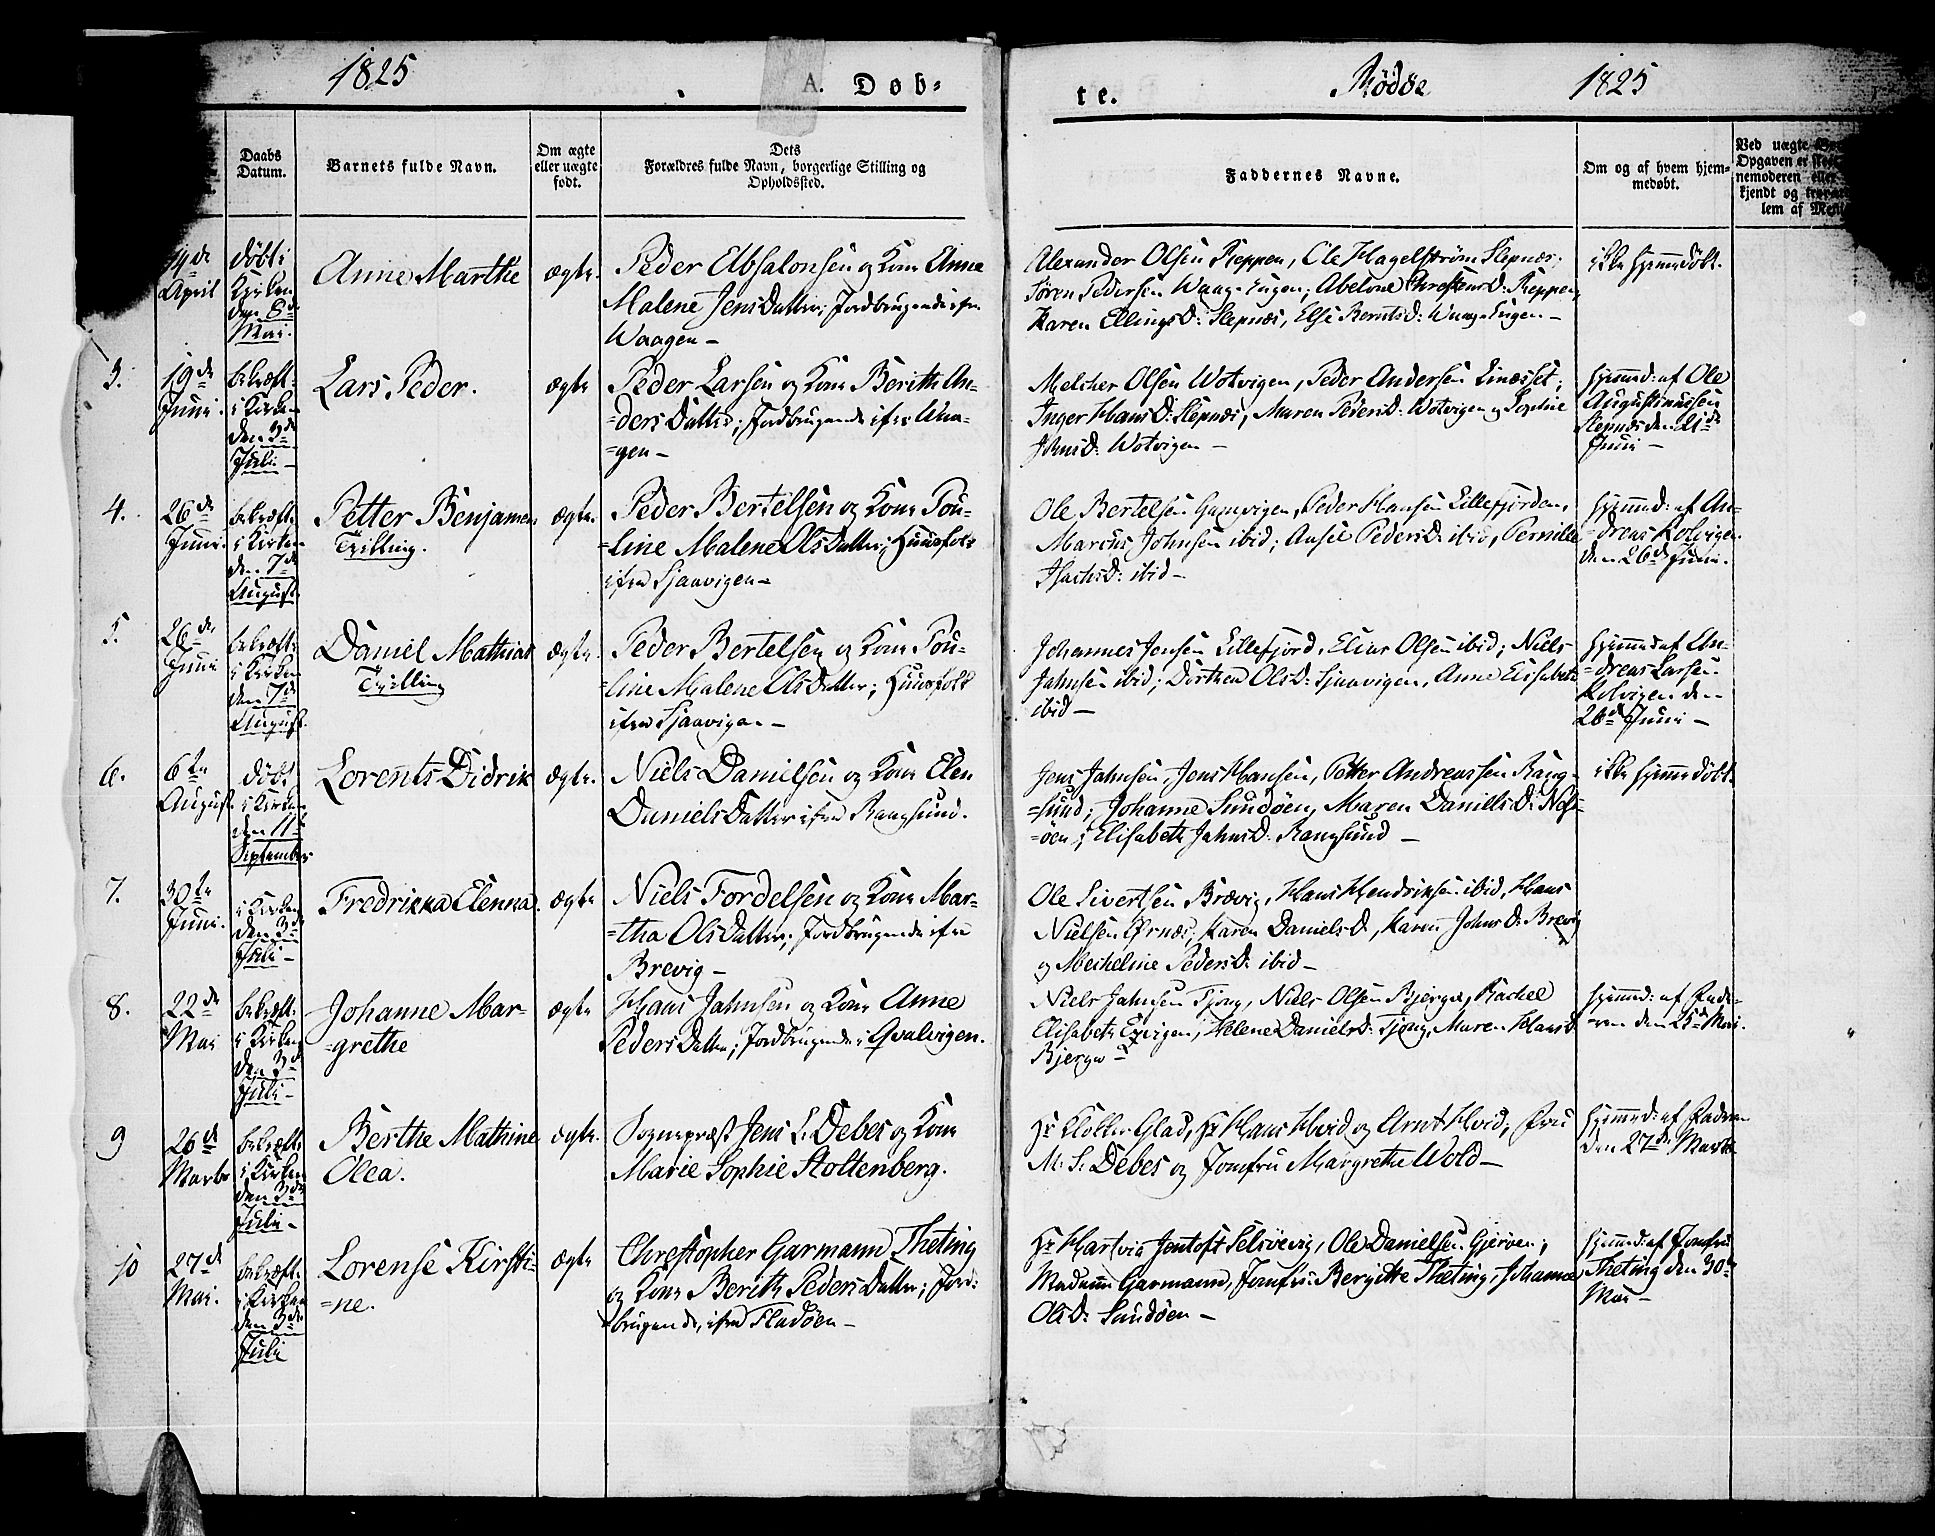 1825
A. Døb-
te.
Rödöe
1825
Daabs
Datum.
Barnets fulde Navn.
Om ægte
eller uægte
født.
Dets
Forældres fulde Navn, borgerlige Stilling og
Opholdssted.
Faddernes Navne.
Om og af hvem hjem-
medøbt.
Ved uægte
Opgaven er
nemoderen eller
kjendt og
lem af
April
döbt i
Kirken
den 8d
Mai.
Anne Marthe
ægte.
Peder Absalonsen og Kone Anne
Malene JensDatter; Jordbrugende ifra
Waagen –
Alexander Olsen Reppen, Ole Hagelström Slepnæs;
Sören Pedersen Waag-Eugen; Abelone ChrestensD: Reppen,
Karen EllingsD: Slepnæs, Else BerntsD: Waag-Eugen –
ikke hjemmedöbt.
3.
19de
Juni.
bekræft:
i Kirken
den 3d
Juli –
Lars Peder.
ægte
Peder Larsen og Kone Berith An-
=dersDatter; Jordbrugende ifra Waa-
=gen –
Melcher Olsen Wotvigen, Peder Andersen Einæsset;
Inger HansD: Slepnæs, Maren PedersD: Wotvigen og Sophie
JensD: Wotvigen –
hjemmed: af Ole
Augustinussen
Slepnæs den 21de
Juni –
4.
26de
Juni.
bekræft:
i Kirken
den 7de
August
Petter Benjamen
Tvilling.
ægte.
Peder Bertelsen og Kone Pou-
=line Malene OlsDatter; Huusfolk
ifra Sjaavigen –
Ole Bertelsen Gamvigen, Peder Hansen Lillefjorden,
Marcus Johnsen ibid; Ansel PedersD: ibid, Pernille
IsachsD: ibid –
hjemmed: af An-
=dreas Kolvigen
den 26d Juni.
5.
26de
Juni
bekræft:
i Kirken
den 7de
August
Daniel Mathias
Tvilling
ægte.
Peder Bertelsen og Kone Pou-
=line Malene OlsDatter; Huusfolk
ifra Sjaavigen –
Johannes Jensen Lillefjord, Elias Olsen ibid; Niels
Jahnsen ibid; Dorthea OlsD: Sjaavigen, Anne Elisabeth
ibid –
hjemmed: af An-
=dreas Larsen
Kolvigen den
26d Juni –
6.
6te
August.
döbt
i Kirken
den 11te
September
Lorents Didrik
ægte.
Niels Danielsen og Kone Elen
DanielsDatter ifra Rangsund.
Jens Jahnsen, Jens Hansen, Petter Andreassen Rang-
=sund; Johanne Sundöen, Maren DanielsD: Nes-
=öen; Elisabeth JahnsD: Rangsund –
ikke hjemmedöbt.
7.
30te
Juni.
i Kirken
den 3de
Juli –
Fredrikka Elenna.
ægte
Niels Fordelsen og Kone Mar-
=tha OlsDatter; Jordbrugende ifra
Brevig –
Ole Sivertsen Brævig, Hans Hendriksen ibid, Hans
Nielsen Örnæs; Karen DanielsD:, Karen JohnsD: Brevig
og Mecheline PedersD: ibid –
8.
22de
Mai
bekræft:
i Kirken
den 3de
Juli –
Johanne Mar-
=grethe
ægte
Hans Jahnsen og Kone Anne
PedersDatter; Jordbrugende i Qvalvigen.
Niels Jahnsen Tjong, Niels Olsen Bjerga, Rachel
Elisabeth Exvigen, Helene DanielsD: Tjong, Maren HansD:
Bjerga –
hjemmed: af Fade-
=ren den 25d Mai.
9
26d
Marts
bekræft:
i Kirken
den 3de
Juli –
Berthe Mathine
Olea.
ægte.
Sognepræst Jens L. Debes og Kone
Marie Sophie Stoltenberg.
Hr Kloller Glad, Hr Hans Hvid og Arnt Hvid; Fru
M. S. Debes og Jomfru Margrethe Wold –
hjemmed: af Faderen
den 27de Marts
10
27de
Mai.
bekræft:
i Kirken
den 3de
Juli
Lorense Kirsti-
=ne.
ægte
Christopher Garmann Theting
og Kone Berith PedersDatter; Jord-
=brugende, ifra Fladöen –
Hr Hartvig Jentoft Selsövig, Ole Danielsen Gjeröen;
Madame Garmann, Jomfru Bergitte Theting, Johanne
OlsD: Sundöen –
hjemmed: af Jomfru
Theting den 30d
Mai –